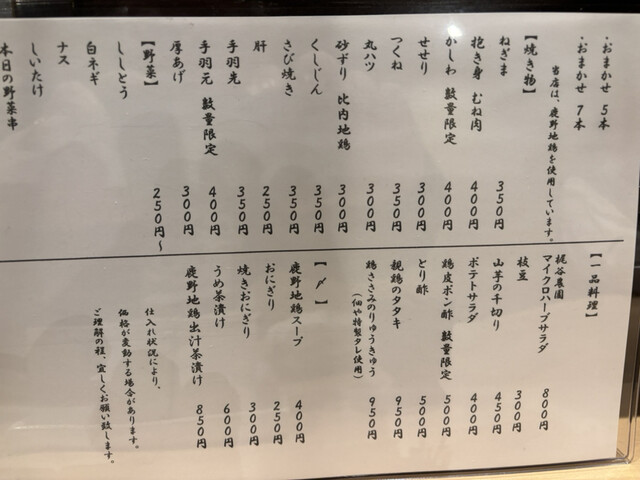 ・おまかせ 5本
・おまかせ 7本
当店は、鹿野地鶏を使用しています。
【焼き物】
ねぎま 350円
抱き身 むね肉 400円
かしわ 数量限定 400円
せせり 300円
つくね 350円
丸ハツ 300円
砂ずり 比内地鶏 300円
くしじん 350円
さび焼き 350円
肝 250円
手羽先 350円
手羽元 数量限定 400円
厚あげ 300円
【野菜】 250円〜
ししとう
白ネギ
ナス
しいたけ
本日の野菜串
【一品料理】
梶谷農園
マイクロハーブサラダ 800円
枝豆 300円
山芋の千切り 450円
ポテトサラダ 400円
鶏皮ポン酢 数量限定 500円
とり酢 500円
親鶏のタタキ 950円
鶏ささみのりゅうきゅう 950円
(佃や特製タレ使用)
【〆】
鹿野地鶏スープ 400円
おにぎり 250円
焼きおにぎり 300円
うめ茶漬け 600円
鹿野地鶏出汁茶漬け 850円
仕入れ状況により、
価格が変動する場合があります。
ご理解の程、宜しくお願い致します。